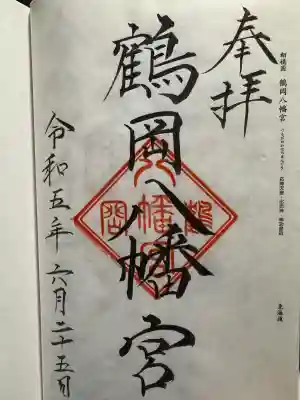 奉拝
鶴岡八幡宮
令和五年六月二十五日
相模国 鶴岡八幡宮